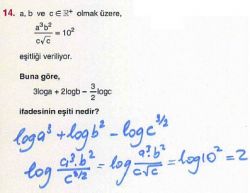 14. a, b ve c ∈ ℝ⁺ olmak üzere,
a³b² / c√c = 10²
eşitliği veriliyor.
Buna göre,
3loga + 2logb − 3/2 logc
ifadesinin eşiti nedir?
loga³ + logb² − logc^(3/2)
log a³.b² / c^(3/2) = log a³.b² / c√c = log10² = 2